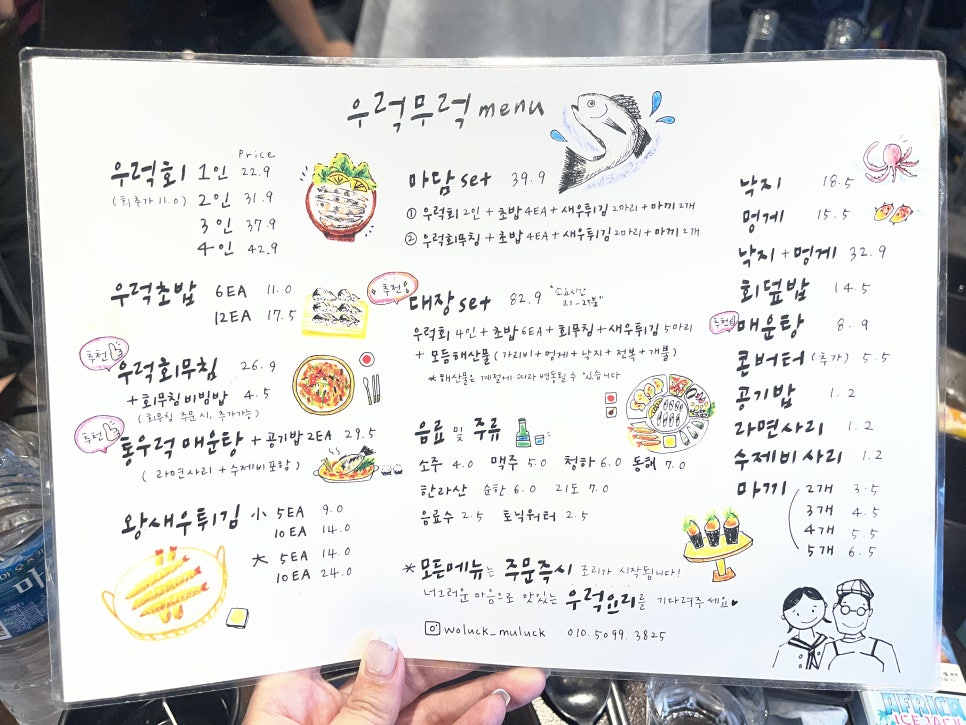 우럭무럭 menu
Price
우럭회 1인 22.9
(회추가 11.0) 2인 31.9
3인 37.9
4인 42.9
우럭초밥 6EA 11.0
12EA 17.5
추천
우럭회무침 26.9
+ 회무침비빔밥 4.5
(회무침 주문시, 추가가능)
추천
통우럭매운탕 + 공기밥 2EA 29.5
(라면사리 + 수제비포함)
왕새우튀김 小 5EA 9.0
10EA 14.0
大 5EA 14.0
10EA 24.0
마담 set 39.9
① 우럭회 2인 + 초밥 4EA + 새우튀김 2마리 + 마끼 2개
② 우럭회무침 + 초밥 4EA + 새우튀김 2마리 + 마끼 2개
추천
대장 set 82.9 "소요시간
우럭회 4인 + 초밥 6EA + 회무침 + 새우튀김 5마리
+ 모듬해산물 (가리비 + 멍게 + 낙지 + 전복 + 개불)
* 해산물은 계절에 따라 변동될 수 있습니다
음료 및 주류
소주 4.0 맥주 5.0 청하 6.0 동해 7.0
한라산 순한 6.0 21도 7.0
음료수 2.5 토닉워터 2.5
* 모든메뉴는 주문즉시 조리가 시작됩니다!
너그러운 마음으로 맛있는 우럭요리를 기다려주세요
woluck_muluck 010.5099.3825
낙지 18.5
멍게 15.5
낙지 + 멍게 32.9
회덮밥 14.5
추천
매운탕 8.9
콘버터 (추가) 5.5
공기밥 1.2
라면사리 1.2
수제비사리 1.2
마끼 2개 3.5
3개 4.5
4개 5.5
5개 6.5
AFRICA